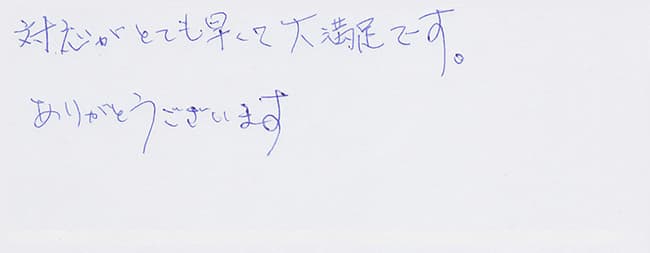 対応がとても早くて大満足です。
ありがとうございます